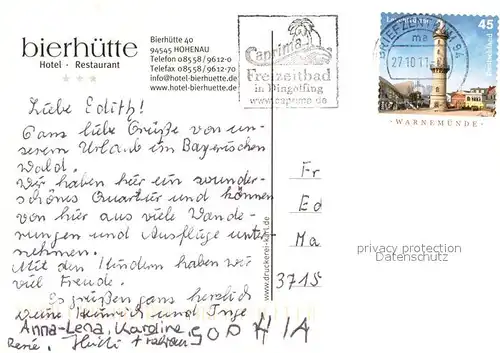 bierhütte
Hotel · Restaurant
Bierhütte 40
94545 HOHENAU
Telefon 08558/9612-0
Telefax 08558/9612-70
info@hotel-bierhuette.de
www.hotel-bierhuette.de
Caprima
Freizeitbad
in Dingolfing
www.caprima.de
BRIEFZENTRUM 94
ma
27.10.11
45
Deutschland
WARNEMÜNDE
Liebe Edith!
Ganz liebe Grüße von un-
serem Urlaub im Bayerischen
Wald.
Wir haben hier ein wunder-
schönes Quartier und können
von hier aus viele Wande-
rungen und Ausflüge unter-
nehmen.
Mit den Kindern haben wir
viel Freude.
Es grüßen ganz herzlich
Heinrich und Inge
Anna-Lena, Karoline, SOPHIA
René,
Fr
Ed
Ma
3715
www.druckerei-karl.de
privacy protection
Datenschutz